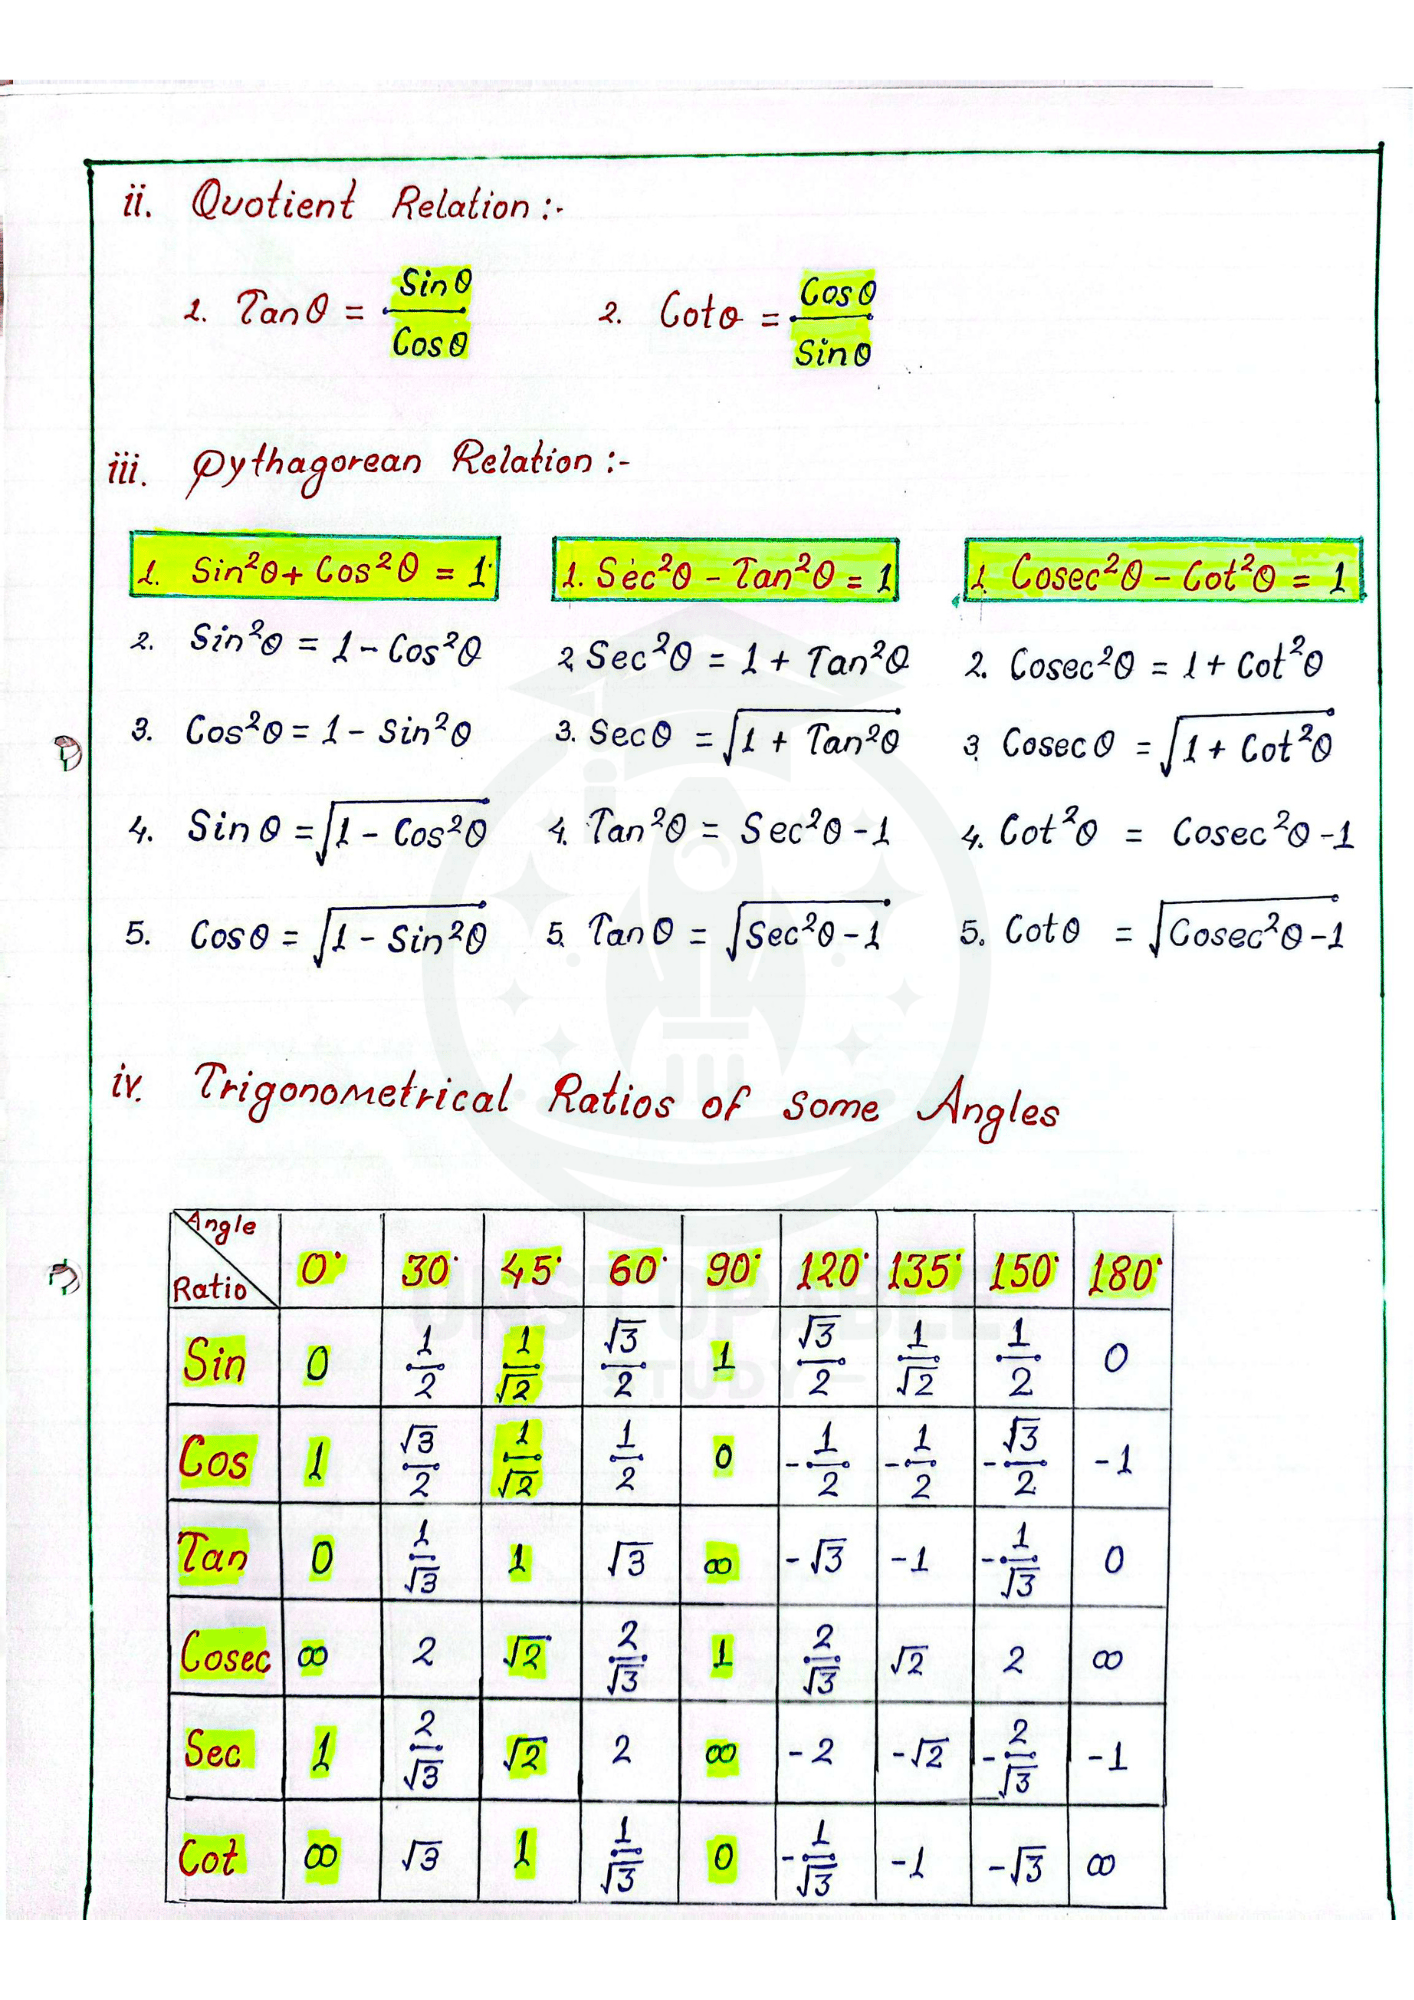 ii. Quotient Relation :-
1. Tanθ = Sinθ/Cosθ 2. Cotθ = Cosθ/Sinθ
iii. Pythagorean Relation :-
1. Sin²θ + Cos²θ = 1 1. Sec²θ - Tan²θ = 1 1. Cosec²θ - Cot²θ = 1
2. Sin²θ = 1 - Cos²θ 2 Sec²θ = 1 + Tan²θ 2. Cosec²θ = 1 + Cot²θ
3. Cos²θ = 1 - Sin²θ 3. Secθ = √(1 + Tan²θ) 3 Cosecθ = √(1 + Cot²θ)
4. Sinθ = √(1 - Cos²θ) 4. Tan²θ = Sec²θ - 1 4. Cot²θ = Cosec²θ - 1
5. Cosθ = √(1 - Sin²θ) 5. Tanθ = √(Sec²θ - 1) 5. Cotθ = √(Cosec²θ - 1)
iv. Trigonometrical Ratios of some Angles
Angle
Ratio 0° 30° 45° 60° 90° 120° 135° 150° 180°
Sin 0 1/2 1/√2 √3/2 1 √3/2 1/√2 1/2 0
Cos 1 √3/2 1/√2 1/2 0 -1/2 -1/2 -√3/2 -1
Tan 0 1/√3 1 √3 ∞ -√3 -1 -1/√3 0
Cosec ∞ 2 √2 2/√3 1 2/√3 √2 2 ∞
Sec 1 2/√3 √2 2 ∞ -2 -√2 -2/√3 -1
Cot ∞ √3 1 1/√3 0 -1/√3 -1 -√3 ∞
UNSTOPABLE
STUDY